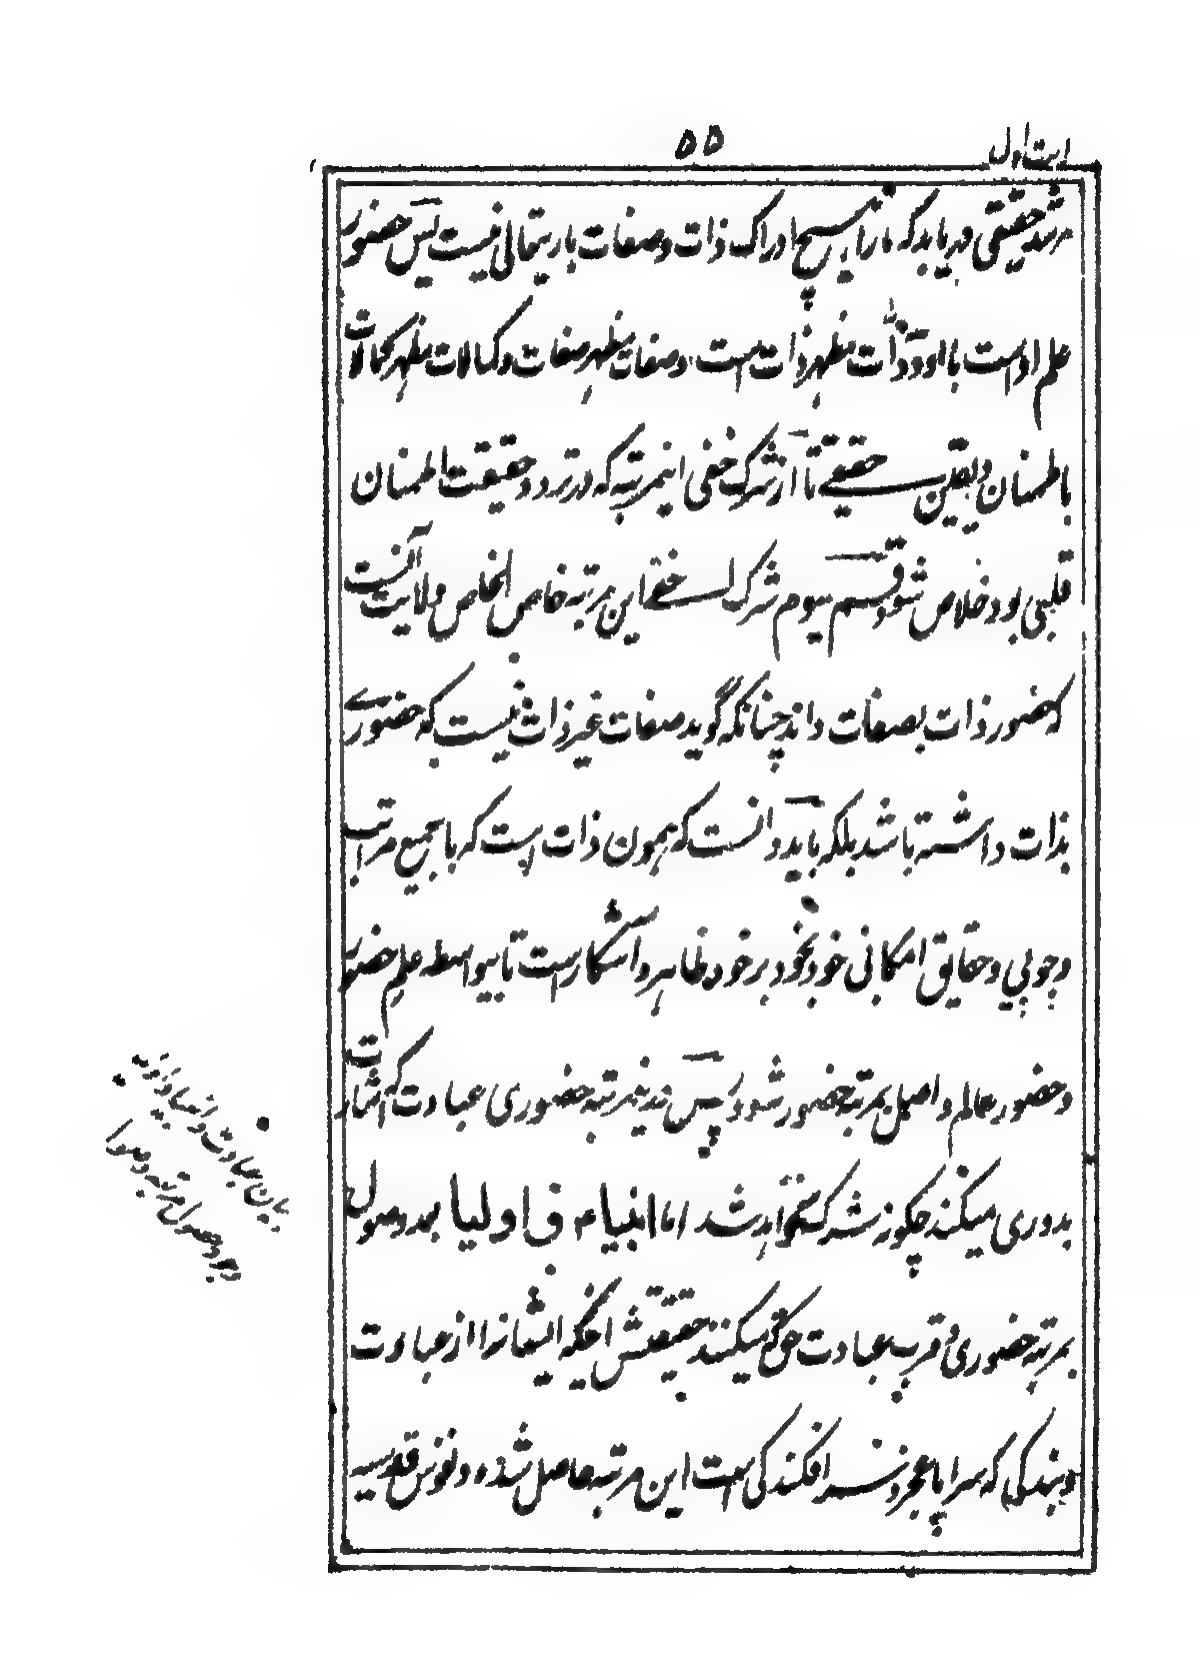 ۵۵
ایت اول
مرشد حقیقی دریابد که مارا بهیچ ادراک ذات و صفات باریتعالی نیست پس حضور
علم اوست با او و ذات مظهر ذات است و صفات مظهر صفات و کمالات مظهر کمالات
باطمنان و یقین حقیقے تا از شرک خفی اینمرتبه که در تردد حقیقت اطمنان
قلبی بود خلاص شود قسم سیوم شرک اخفے این مرتبه خاص الخاص ولایت آنست
که حضور ذات بصفات داند چنانکه گوید صفات غیر ذات نیست که حضورے
بذات داشته باشد بلکه باید دانست که همون ذات است که با جمیع مراتب
وجوبی و حقایق امکانی خود بخود بر خود ظاهر و آشکار است تا بیواسطه علم حضور
و حضور عالم واصل بمرتبه حضور شود پس درینمرتبه حضوری عبادت که اشارت
بدوری میکند چگونه شرک نخواهد شد اما انبیاء و اولیا بعد وصول
بمرتبه حضوری و قرب عبادت حق که میکنند حقیقتش اینکه ایشانرا از عبادت
و بندگی که سراپا عجز و سرافکندگی است این مرتبه حاصل شده و نفوس قدسیه
بیان عبادت و انبیا و اولیا
وجود حصول مرتبه وصول